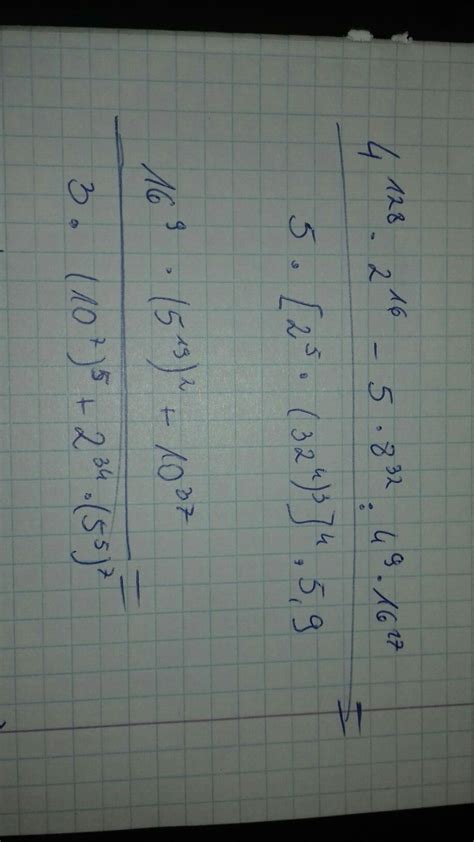 4¹²⁸ · 2¹⁶ − 5 · 8³² : 4⁹ · 16²⁷ =
5 · [2⁵ · (32⁴)³]⁴ · 5,9
16⁹ · (5¹⁹)² + 10³⁷ =
3 · (10⁷)⁵ + 2³⁴ · (5⁵)⁷